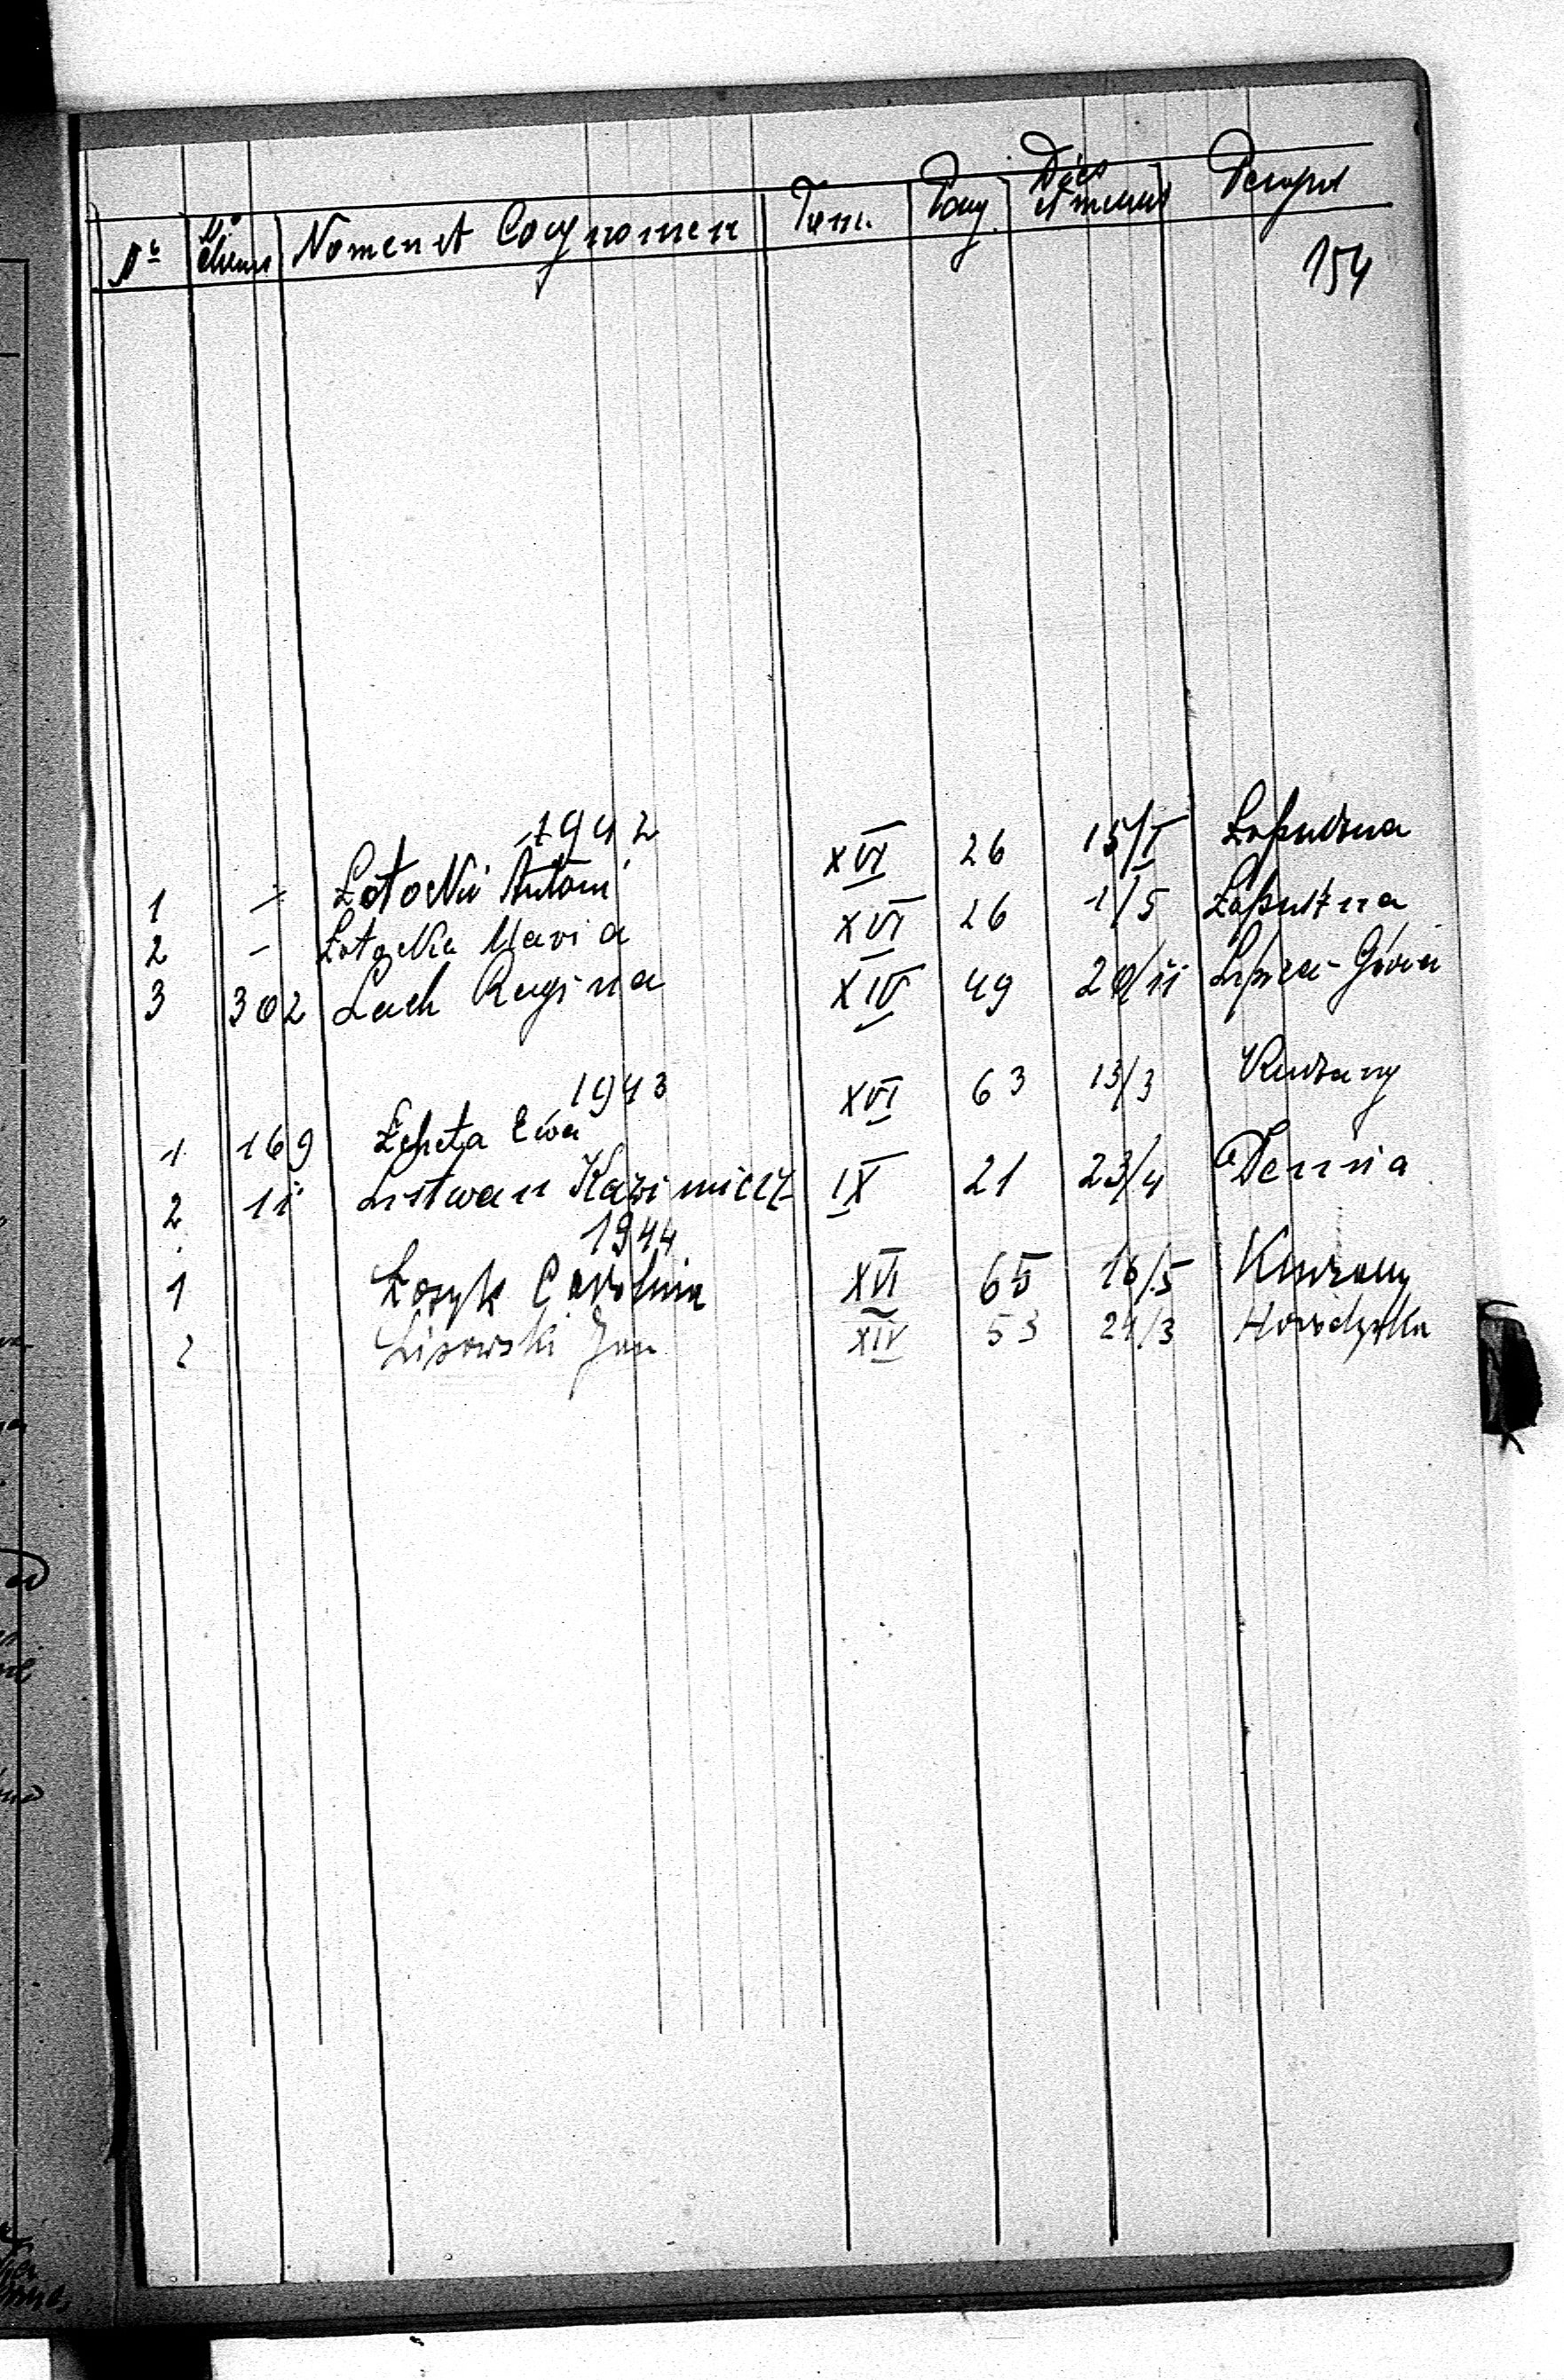 Nº Nº domus Nomen et Cognomen Tom. Pag. Dies et mensis
154
1942
1 – Łotocki Antoni XVI 26 15/I Łopuszna
2 – Łotocka Maria XVI 26 1/5 Łopuszna
3 302 Lach Regina XIV 49 20/11 Lipica-Górna
1943
1 169 Łepeta Ewa XVI 63 13/3
2 11 Listwan Kazimierz IX 21 23/4 Demnia
1944
1 Łozyk Carolina XVI 65 16/5
2 Lisowski Jan XIV 53 24/3